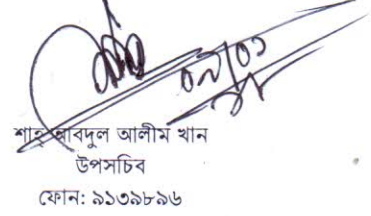 শাহ্ আবদুল আলীম খান
উপসচিব
ফোন: ৯১৩৯৮৯৬